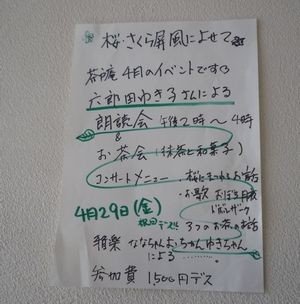 桜・さくら屏風によせて
茶庵 4月のイベントです
六郎田ゆき子さんによる
朗読会 午後2時～4時
&
お茶会(抹茶と和菓子)
コンサートメニュー ・桜にまつわるお話
・お歌 おぼろ月夜
ドボルザーク
4月29日(金)
祝日デス!! 3つのお茶のお話
雅楽 ななちゃん おっちゃん ゆきちゃん
による………
参加費 1500円デス